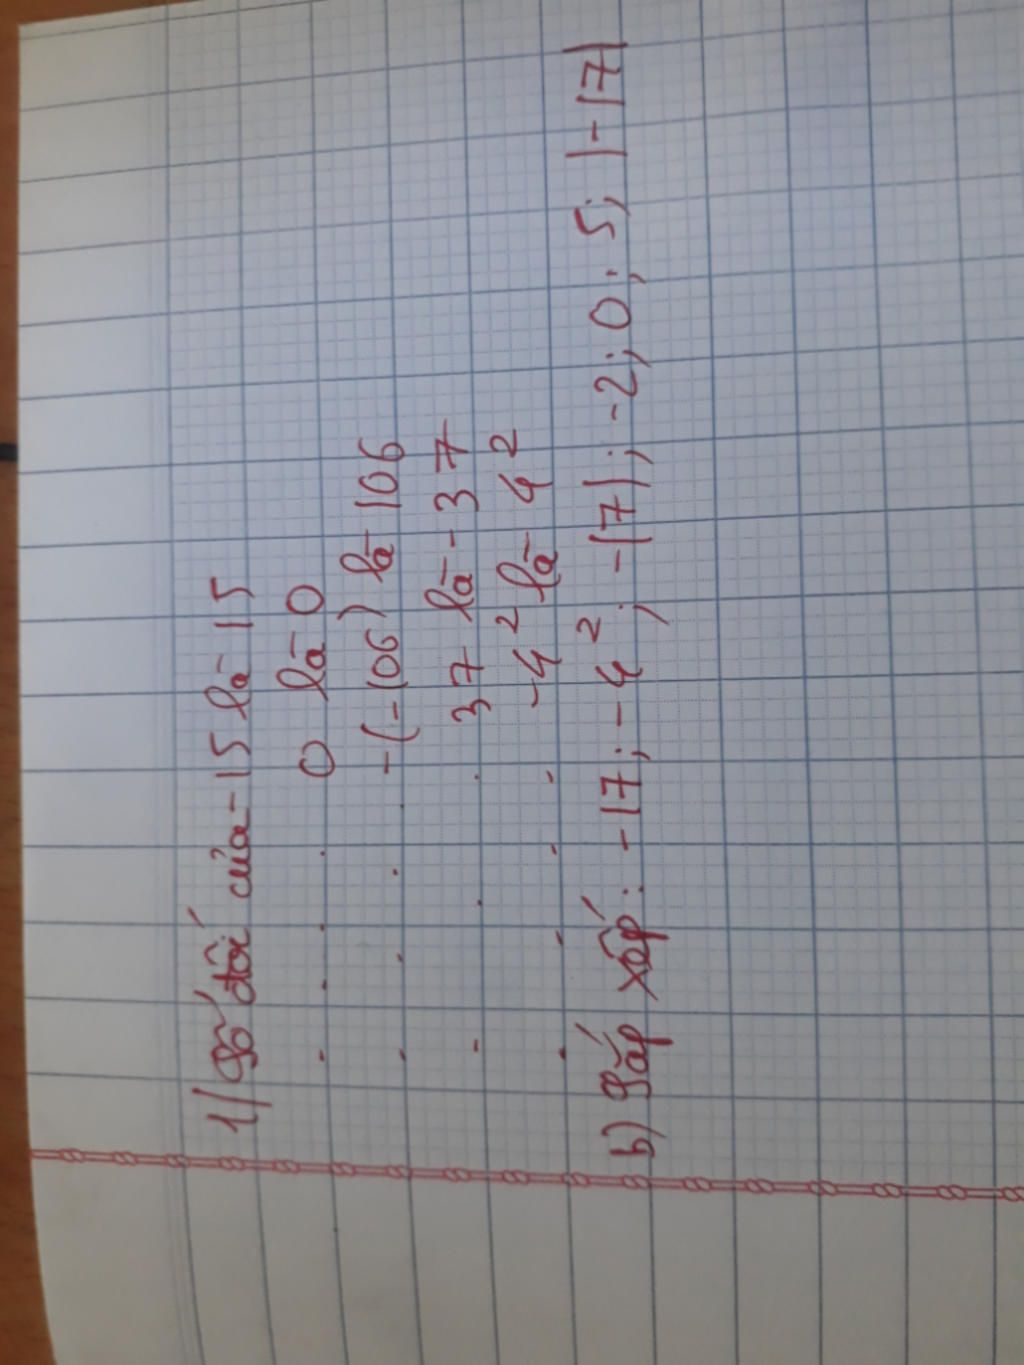 1/ Số đối của -15 là 15
. . . . 0 là 0
. . . . -(-106) là 106
. . . 37 là -37
. . . . -4² là 4²
b) Sắp xếp: -17; -4²; -|7|; -2; 0; 5; |-17|